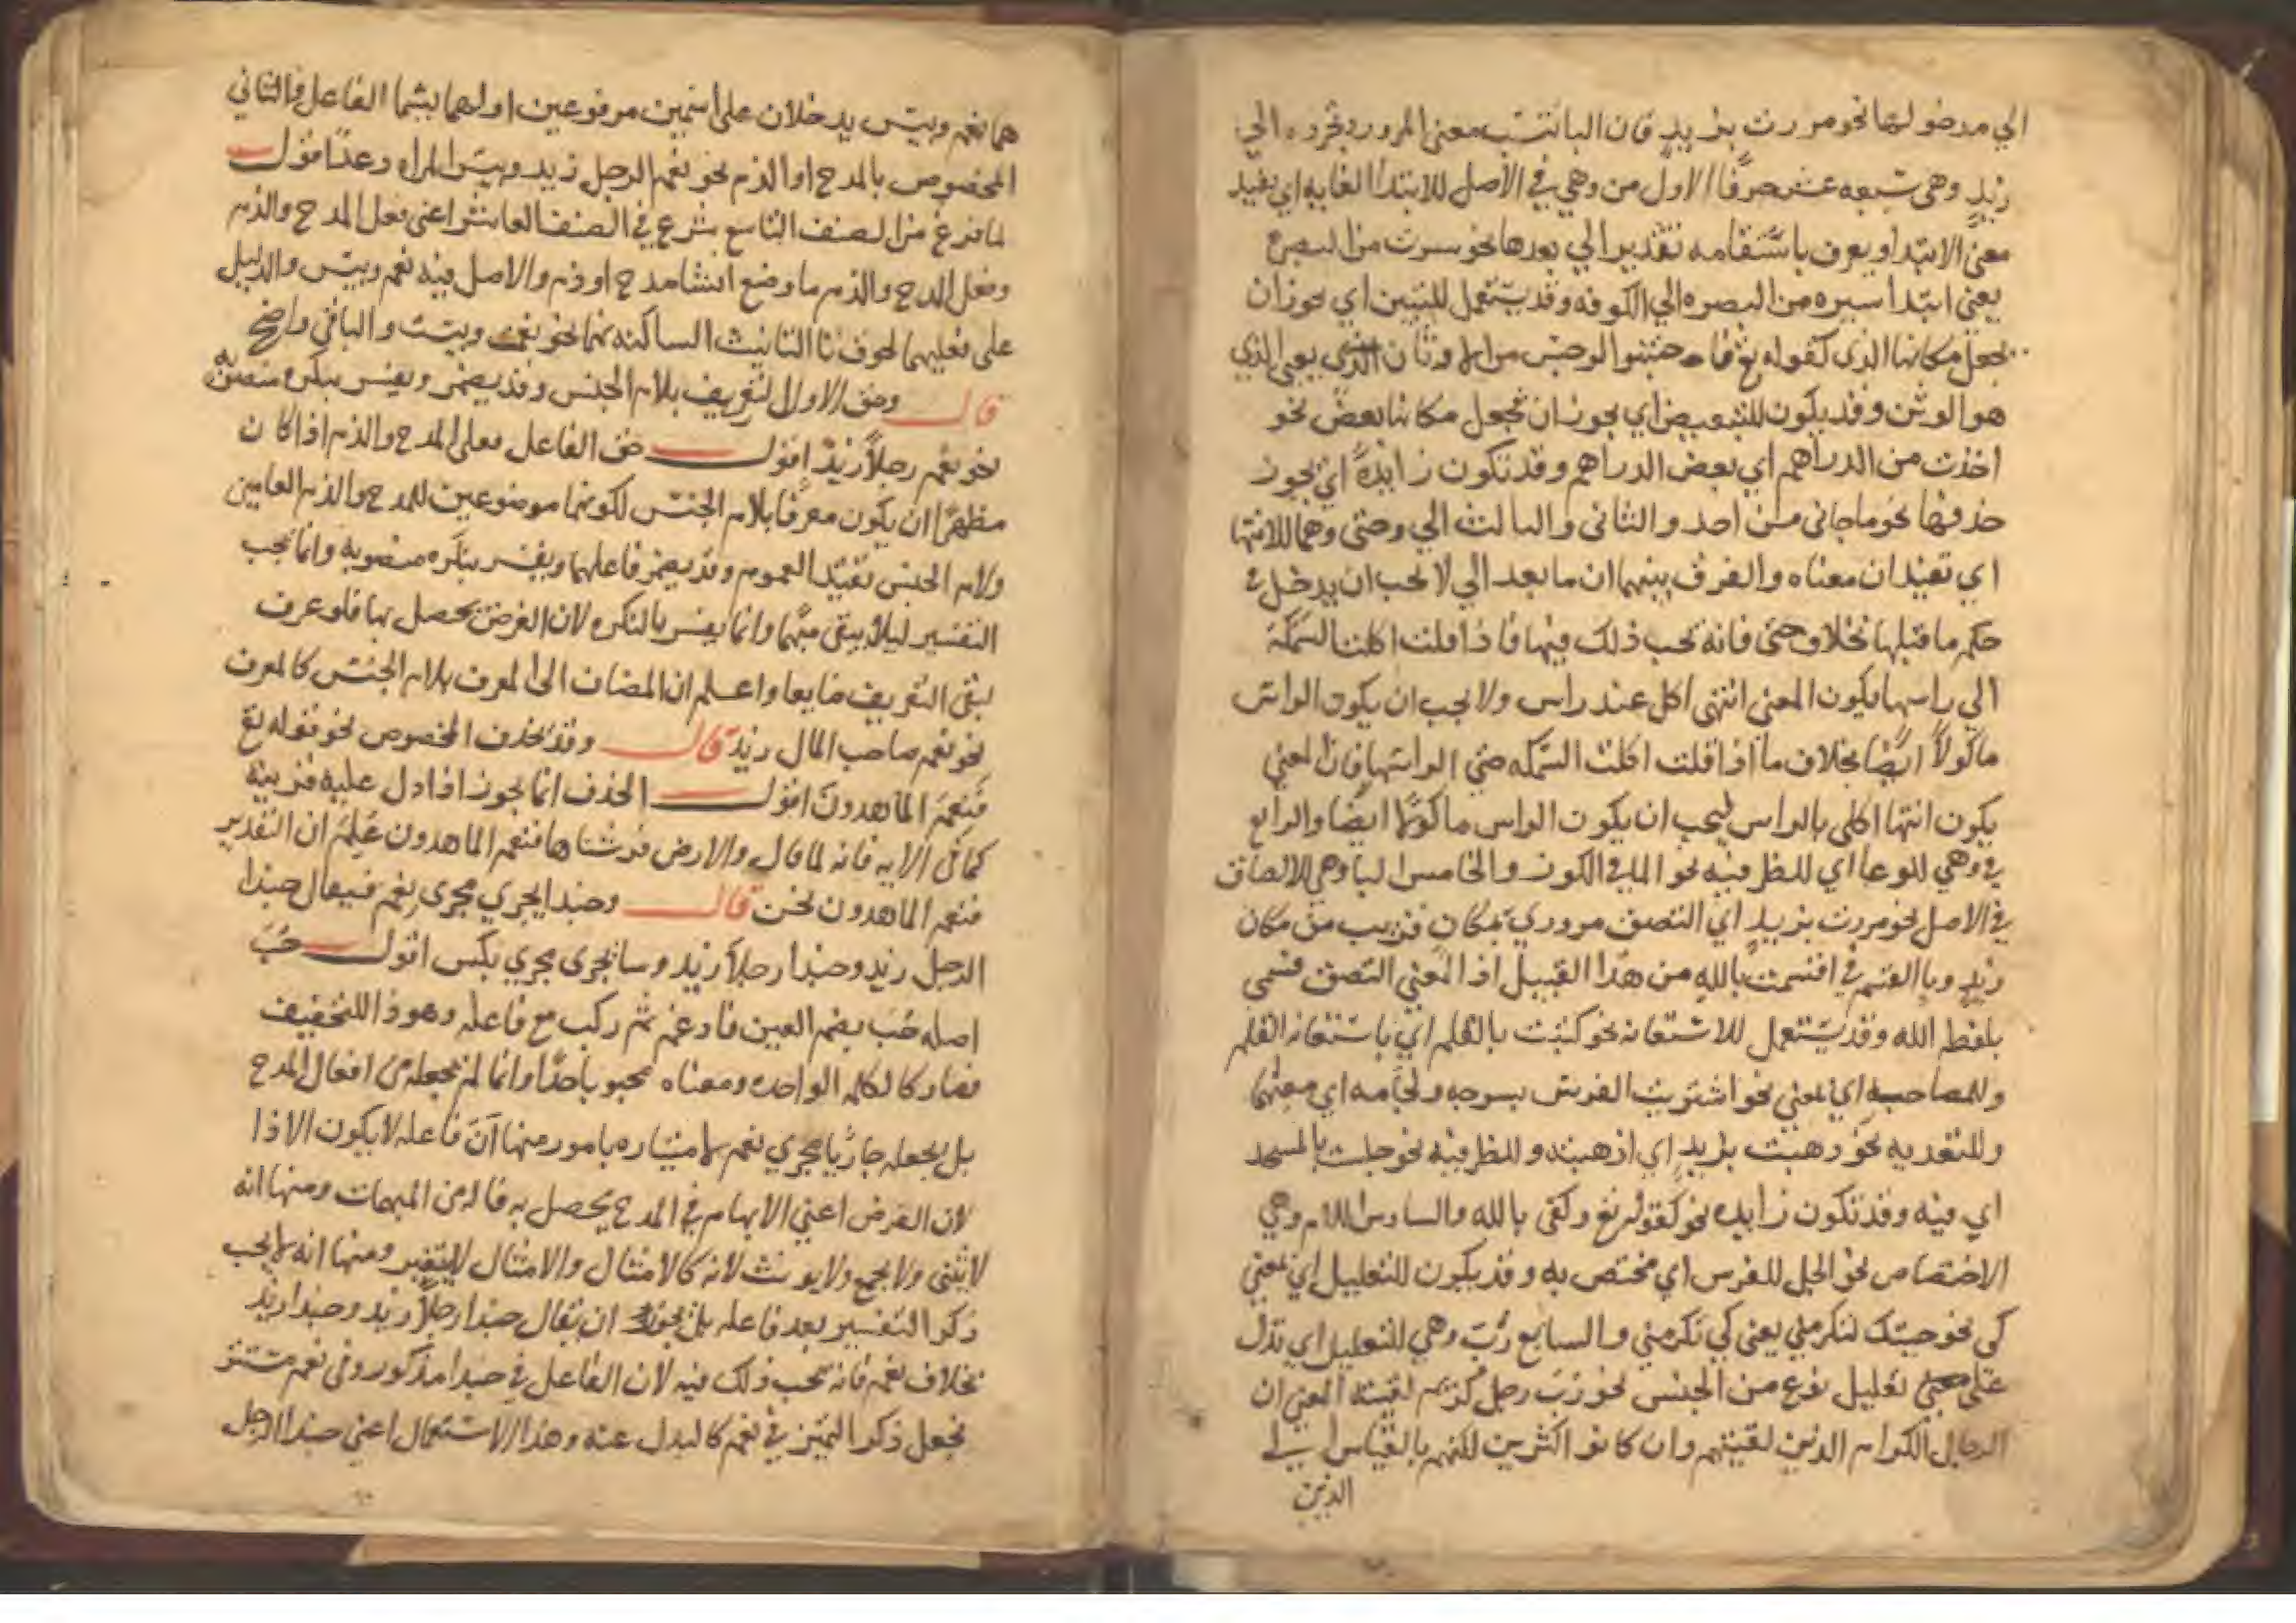 الي مدخولها نحو مررت بزيد فان البا تنسب معنى المرور وتجره الي
زيد وهي تسعه عشر حرفا الاول من وهي في الاصل للابتدا الغايه اي يفيد
معنى الابتدا ويعرف باستقامه تقدير الي بدرها نحو سرت من البصره
يعني ابتدا سيره من البصره الي الكوفه وقد يستعمل للتبيين اي يجوز ان
يجعل مكانها الذي كقوله تع فاجتنبوا الرجس من الاوثان الذي يعني الذي
هو الوثن وقد يكون للتبعيض اي يجوز ان تجعل مكانها بعض نحو
اخذت من الدراهم اي بعض الدراهم وقد تكون زايدة اي يجوز
حذفها نحو ما جاني من احد والثاني والثالث الي وحتى وهما للانتها
اي تفيدان معناه والفرق بينهما ان ما بعد الي لا يجب ان يدخل في
حكم ما قبلها بخلاف حتى فانه يجب ذلك فيها فاذا قلت اكلت السمكة
الي راسها يكون المعنى انتهى اكل عند راس ولا يجب ان يكون الراس
ماكولا ايضا بخلاف ما اذا قلت اكلت السمكه حتي الراسها فان المعني
يكون انتها اكلي بالراس فيجب ان يكون الراس ماكولا ايضا والرابع
في وهي للوعا اي للظرفيه نحو الما في الكوز والخامس البا وهي للالصاق
في الاصل نحو مررت بزيد اي التصق مروري بمكان قريب من مكان
زيد وبا القسم في اقسمت بالله من هذا القبيل اذ المعني التصق قسمي
بلفظ الله وقد يستعمل للاستعانه نحو كتبت بالقلم اي باستعانه القلم
وللمصاحبه اي بمعني نحو اشتريت الفرس بسرجه ولجامه اي معهما
وللتعديه نحو ذهبت بزيد اي اذهبته وللظرفيه نحو جلست بالمسجد
اي فيه وقد تكون زايده نحو كقوله تع وكفى بالله والسادس اللام وهي
الاختصاص نحو الجل للفرس اي مختص به وقد يكون للتعليل اي بمعني
كي نحو جيتك لتكرمني يعني كي تكرمني والسابع رب وهي للتعليل اي تدل
على معني تقليل نوع من الجنس نحو رب رجل كريم لقيته المعني ان
الرجال الكرام الذين لقيتهم وان كانوا اكثرين لكنهم بالقياس الي
الذين
هما نعم وبيس يدخلان على اسمين مرفوعين اولهما يسما الفاعل والثاني
المخصوص بالمدح او الذم نحو نعم الرجل زيد وبيس المراه دعد اقول
لما فرغ من الصنف التاسع شرع في الصنف العاشر اعني فعل المدح والذم
وفعل المدح والذم ما وضع انشا مدح او ذم والاصل فيه نعم وبيس والدليل
على فعليهما لحوق تا التانيث الساكنه بهما نحو نعمت وبيست والباقي واضح
قال وحق الاول التعريف بلام الجنس وقد يضمر ويفسر بنكره منصوبه
نحو نعم رجلا زيد اقول حق الفاعل فعلي المدح والذم اذا كان
مظهرا ان يكون معرفا بلام الجنس لكونهما موضوعين للمدح والذم العامين
ولام الجنس تفيد العموم وقد يضمر فاعلهما ويفسر بنكره منصوبه وانما يجب
التفسير ليلا يبقى مبهما وانما يفسر بالنكره لان الغرض يحصل بها فلو عرف
لبقى التعريف ضايعا واعلم ان المضاف الى المعرف بلام الجنس كالمعرف
نحو نعم صاحب المال زيد قال وقد يحذف المخصوص نحو قوله تع
فنعم الماهدون اقول الحذف انما يجوز اذا دل عليه قرينه
كما في الايه فانه لما قال والارض فرشناها فنعم الماهدون علم ان التقدير
فنعم الماهدون نحن قال وحبذا يجري مجرى نعم فيقال حبذا
الرجل زيد وحبذا رجلا زيد وسا يجرى مجري بيس اقول حب
اصله حبب بضم العين فادغم ثم ركب مع فاعله وهو ذا للتخفيف
فصار كالكلمه الواحده ومعناه محبوب جدا وانما لم يجعله من افعال المدح
بل يجعله جاريا مجري نعم لامتيازه بامور منها ان فاعله لا يكون الا ذا
لان الغرض اعني الابهام في المدح يحصل به فانه من المبهمات ومنها انه
لا يثنى ولا يجمع ولا يونث لانه كالامثال والامثال لا يتغير ومنها انه لا يجب
ذكر التفسير بعد فاعله بل يجوز ان يقال حبذا رجلا زيد وحبذا زيد
بخلاف نعم فانه يجب ذلك فيه لان الفاعل في حبذا مذكور وفي نعم مستتر
فجعل ذكر التميز في نعم كالبدل عنه وهذا الاستعمال اعني حبذا الرجل